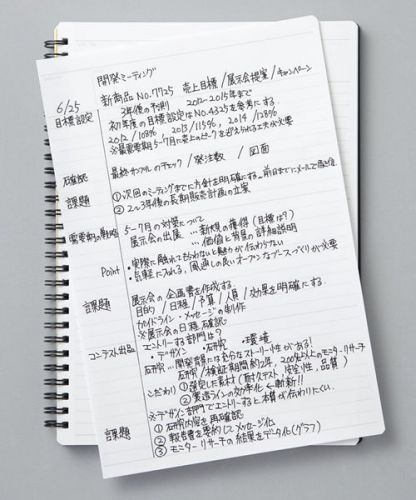 開発ミーティング
6/25 新商品 NO.7725 売上目標/展示会提案/キャンペーン
目標設定 3年後の予測 2012-2015年まで
初年度の目標設定はNO.4325を参考にする
2012/108% 2013/115% 2014/128%
※最重要期5-7月に売上のピークを迎えられる工夫が必要
確認 最終サンプルのチェック/発注数/図面
課題 ①次回のミーティングまでに方針を明確にする…前日までにメールで返信
②2~3年後の長期販売計画の立案
重要期の戦略 5-7月の対策について
展示会の出展…新規の獲得(目標は?)
…価値と背景の詳細説明
Point ・実際に触れてもらわないと魅力が伝わらない
・気軽に入れる、風通しの良いオープンなブースづくりが必要
課題 展示会の企画書を作成する。
目的/日程/予算/人員/効果を明確にする。
ガイドライン・メッセージの制作
※展示会の日程確認
コンテスト出品 エントリーする部門は?
・デザイン ・研究 ・環境
研究…開発背景には十分なストーリー性がある!
研究/検証期間約2年、200名以上のモニターリサーチ
こだわり ①選定した素材(耐久テスト、安全性、品質)
②製造ラインの効率化←斬新!!
※デザイン部門でエントリーすると本質が伝わりにくい。
課題 ①研究内容を再確認
②報告書を要約してメッセージ化
③モニターリサーチの結果をデータ化(グラフ)